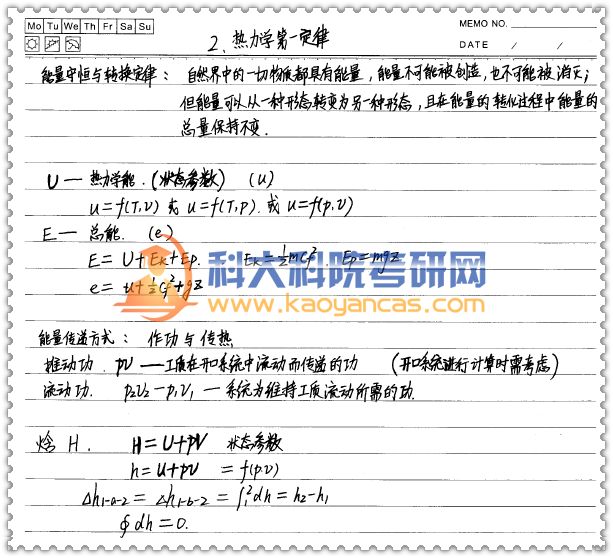 Mo Tu We Th Fr Sa Su
MEMO NO.
DATE / /
2. 热力学第一定律
能量守恒与转换定律： 自然界中的一切物质都具有能量，能量不可能被创造，也不可能被消灭；
但能量可以从一种形态转变为另一种形态，且在能量的转化过程中能量的
总量保持不变.
U — 热力学能.（状态参数）（u）
u=f(T,v) 或 u=f(T,p). 或 u=f(p,v)
E — 总能. (e)
E = U+Ek+Ep. Ek=½mcf². Ep=mgz
e = u+½cf²+gz
科大科院考研网
www.kaoyancas.com
能量传递方式： 作功与传热
推动功. pv — 工质在开口系统中流动而传递的功 （开口系统进行计算时需考虑）
流动功. p₂v₂-p₁v₁ — 系统为维持工质流动所需的功.
焓 H. H=U+pV 状态参数
h=u+pv = f(p,v)
Δh₁₋ₐ₋₂ = Δh₁₋b₋₂ = ∫₁²dh = h₂-h₁
∮dh=0.